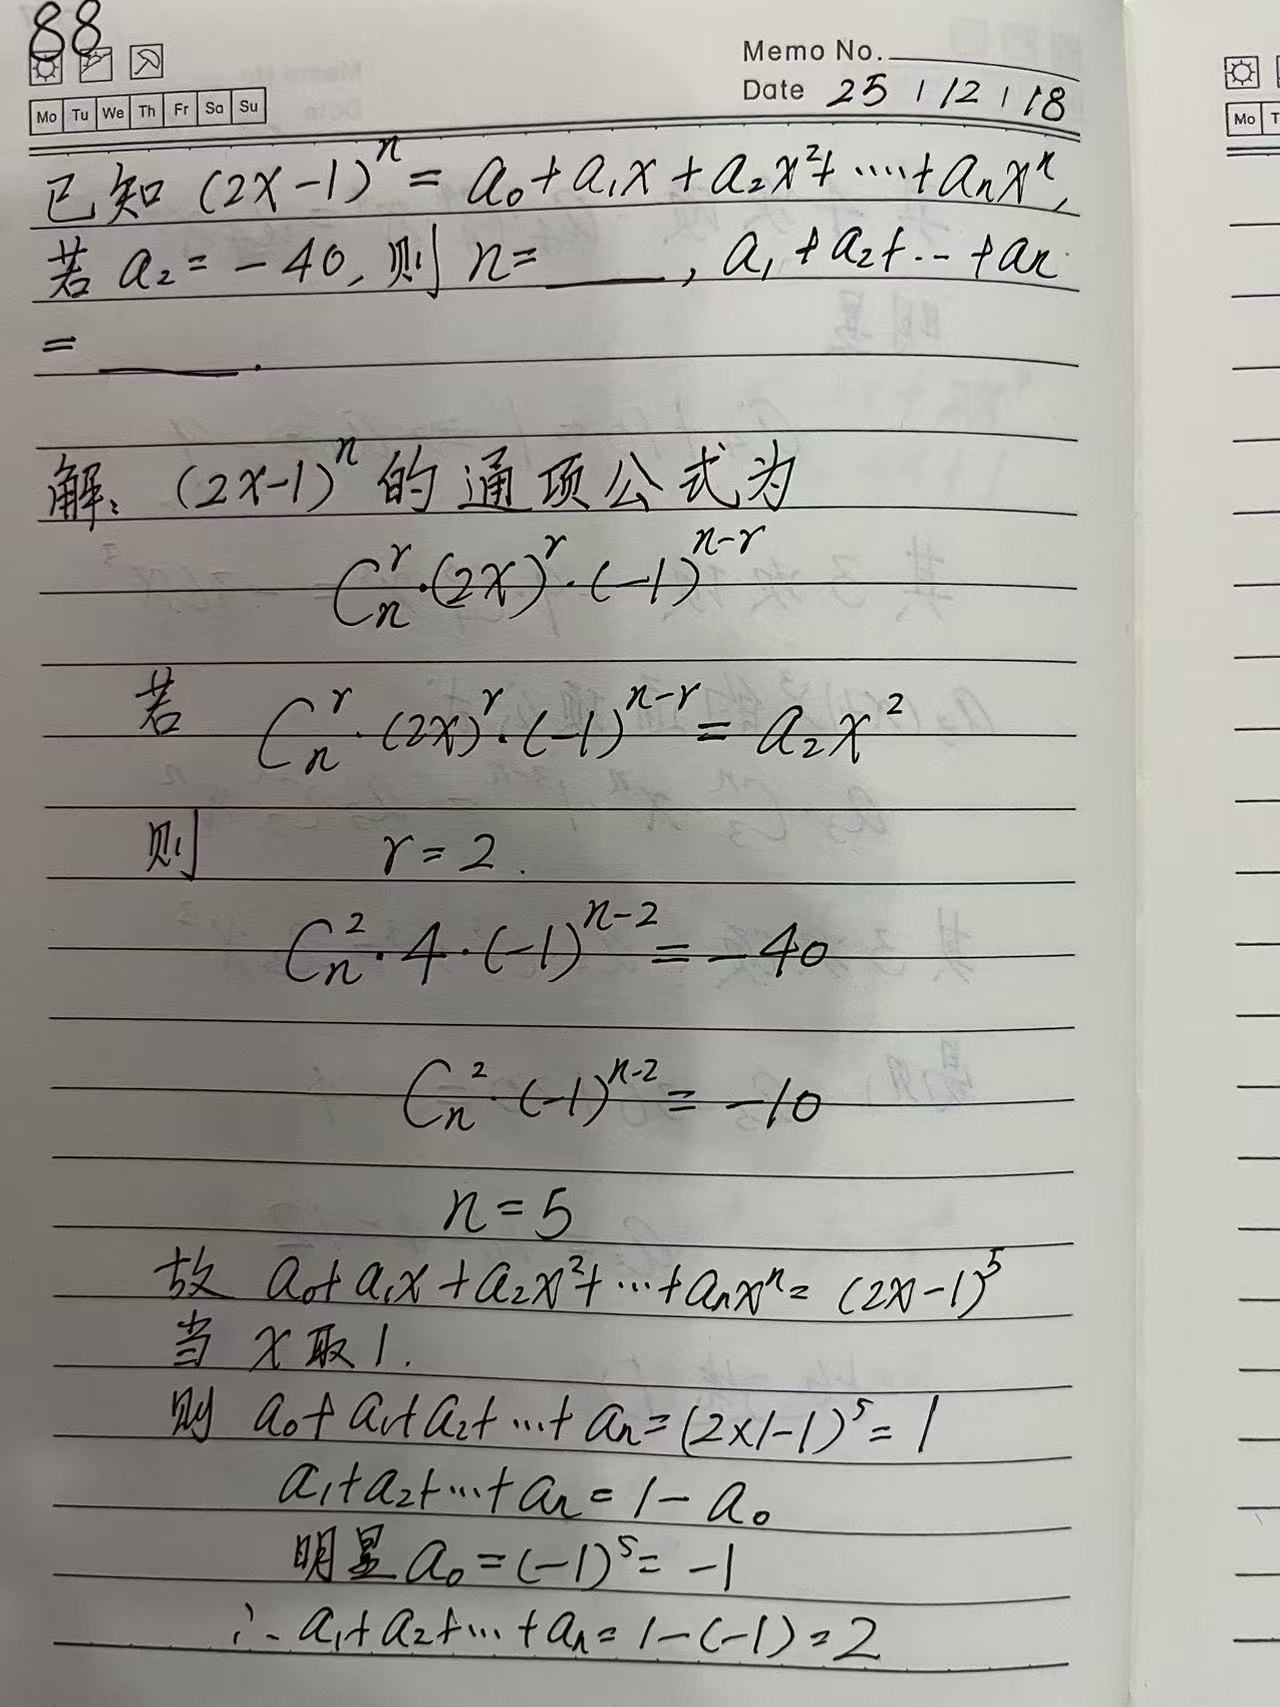 88
Memo No.
Mo Tu We Th Fr Sa Su
Date 25 / 12 / 18
已知 (2x-1)^n = a₀+a₁x+a₂x²+……+aₙxⁿ,
若 a₂=-40,则 n=____, a₁+a₂+…+aₙ
=____.
解: (2x-1)^n 的通项公式为
Cₙʳ·(2x)ʳ·(-1)^(n-r)
若 Cₙʳ·(2x)ʳ·(-1)^(n-r) = a₂x²
则 r=2.
Cₙ²·4·(-1)^(n-2) = -40
Cₙ²·(-1)^(n-2) = -10
n=5
故 a₀+a₁x+a₂x²+…+aₙxⁿ=(2x-1)⁵
当 x取1.
则 a₀+a₁+a₂+…+aₙ=(2×1-1)⁵=1
a₁+a₂+…+aₙ=1-a₀
明显 a₀=(-1)⁵=-1
∴ a₁+a₂+…+aₙ=1-(-1)=2
Mo T